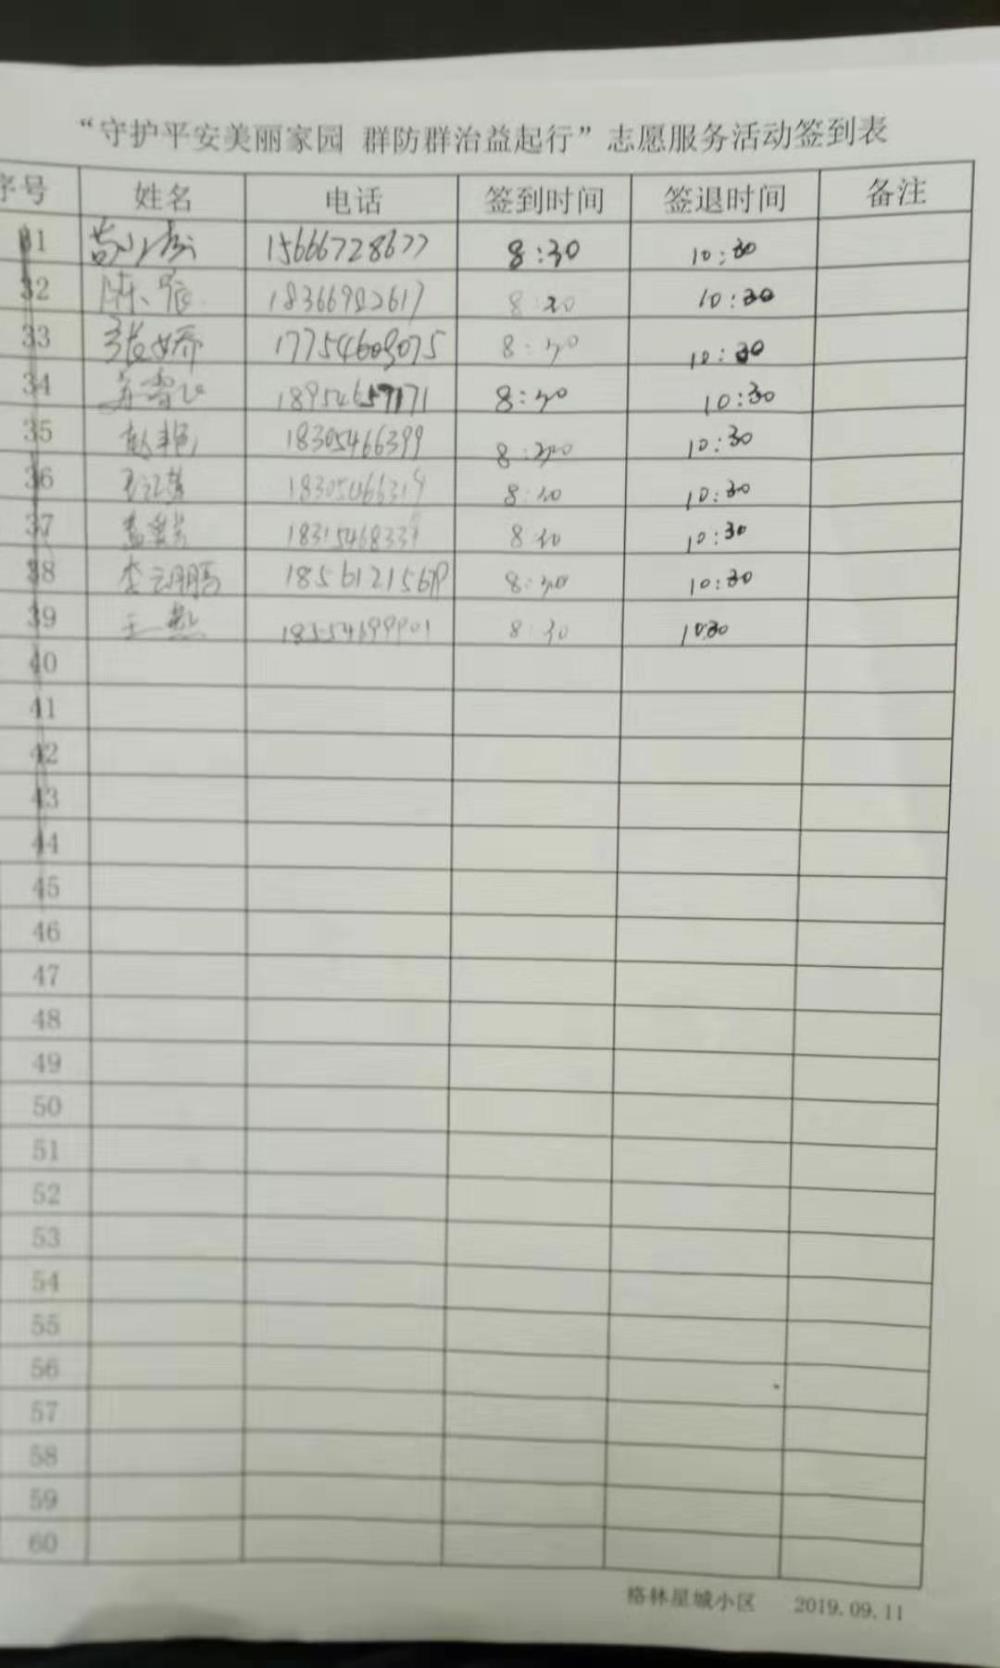 “守护平安美丽家园 群防群治益起行”志愿服务活动签到表
序号 姓名 电话 签到时间 签退时间 备注
31 15666728677 8:30 10:30
32 陈 18366982617 8:30 10:30
33 张娇 17754603075 8:30 10:30
34 18954657171 8:30 10:30
35 赵艳 18305466399 8:30 10:30
36 18305466319 8:30 10:30
37 8:30 10:30
38 李云鹏 8:30 10:30
39 王 8:30 10:30
40
41
42
43
44
45
46
47
48
49
50
51
52
53
54
55
56
57
58
59
60
格林星城小区 2019.09.11